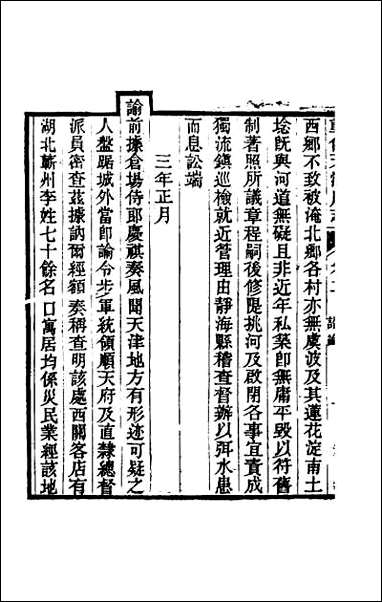 西鄉不致被淹北鄉各村亦無虞波及其蓮花淀南土
埝旣與河道無礙且非近年私築卽無庸平毀以符舊
制著照所議章程嗣後修隄挑河及啟閉各事宜責成
獨流鎭巡檢就近管理由靜海縣稽查督辦以弭水患
而息訟端
三年正月
諭前據倉場侍郎慶祺奏風聞天津地方有形迹可疑之
人盤踞城外當卽諭令步軍統領順天府及直隷總督
派員密查茲據訥爾經額奏稱查明該處西關客店有
湖北蘄州李姓七十餘名口寓居均係災民業經該地